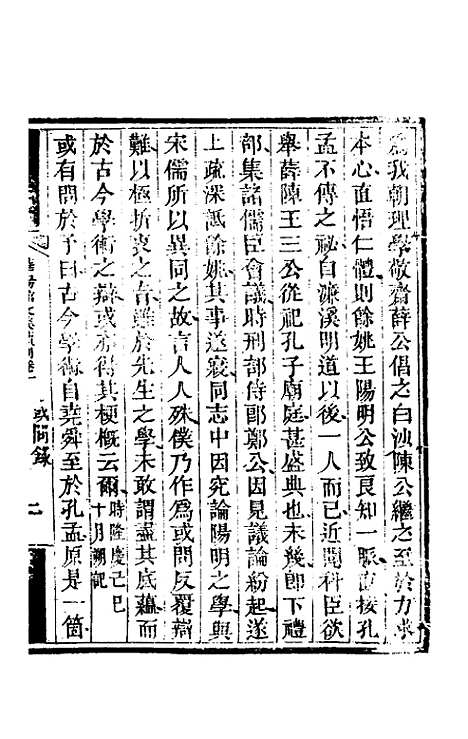 我朝理學敬齋薛公倡之白沙陳公繼之至於力求
本心直悟仁體則餘姚王陽明公致良知一脈直接孔
孟不傳之祕自濂溪明道以後一人而已近聞科臣欲
舉薛陳王三公從祀孔子廟庭甚盛典也未幾即下禮
部集諸儒臣會議時刑部侍郎鄭公因見議論紛起遂
上疏深詆餘姚其事遂寢同志中因究論陽明之學與
宋儒所以異同之故言人人殊僕乃作為或問反覆辯
難以極折衷之旨雖於先生之學未敢謂盡其底蘊而
於古今學術之辯或亦得其梗概云爾時隆慶己巳十月朔記
或有問於予曰古今學術自堯舜至於孔孟原是一箇
或問錄
二